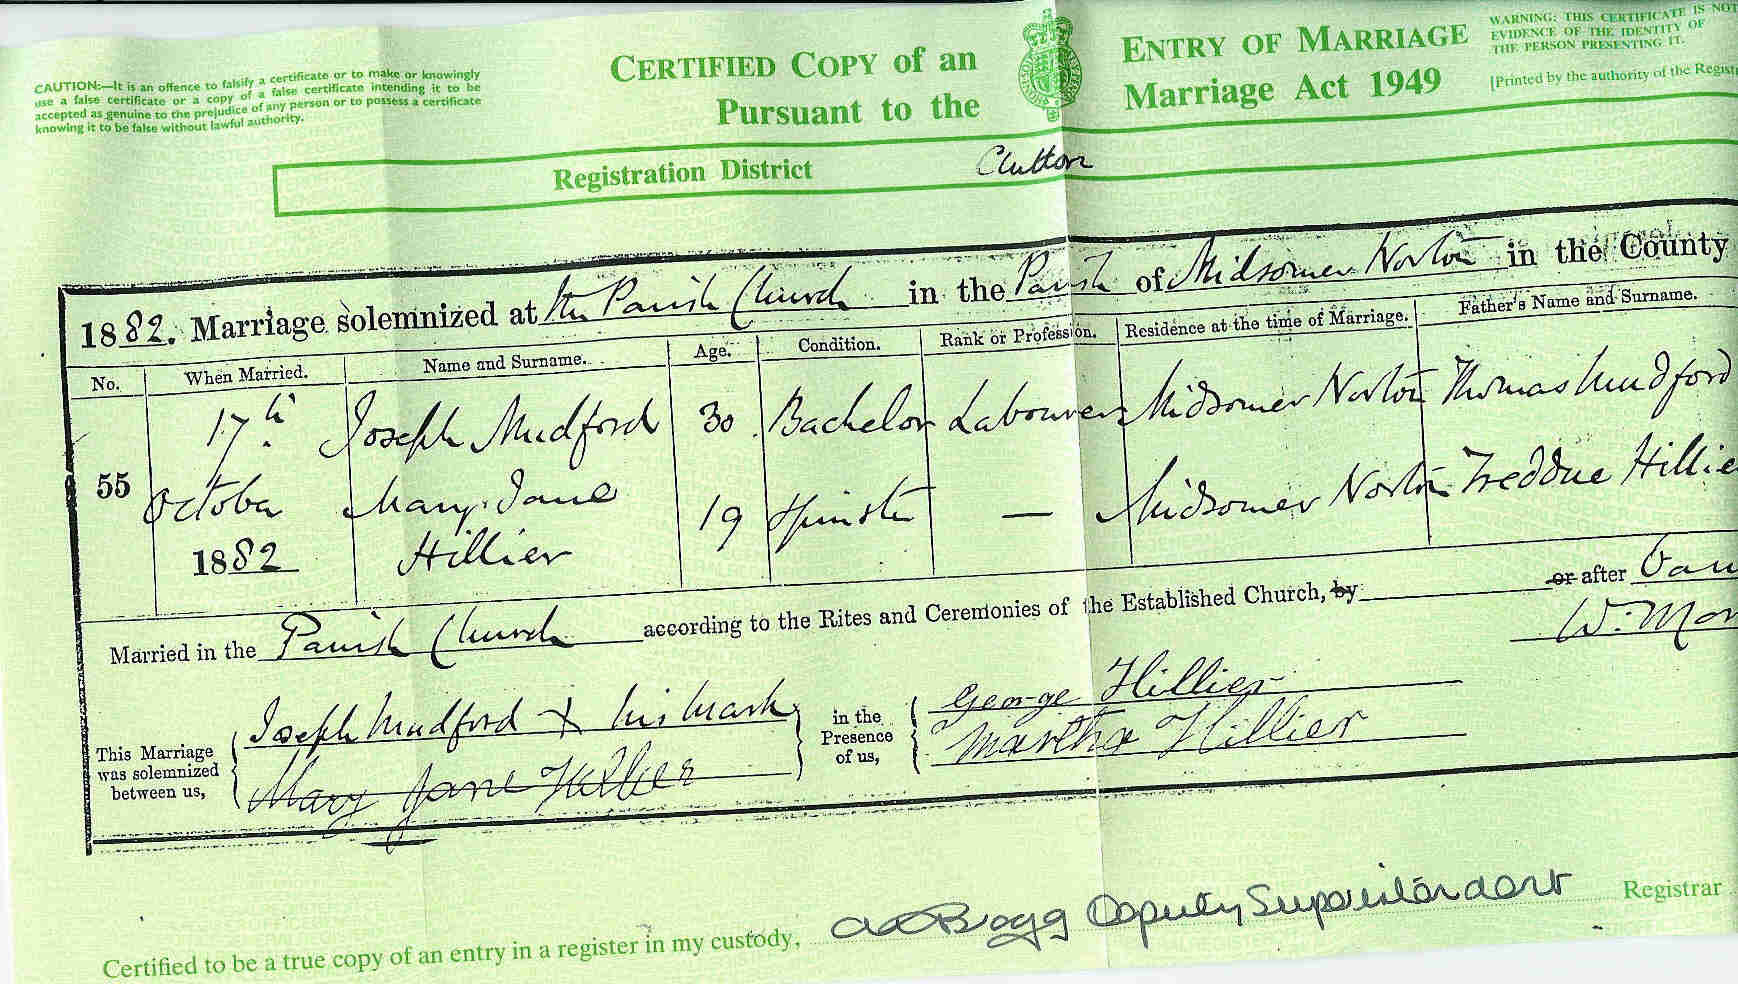 CAUTION:—It is an offence to falsify a certificate or to make or knowingly
use a false certificate or a copy of a false certificate intending it to be
accepted as genuine to the prejudice of any person or to possess a certificate
knowing it to be false without lawful authority.
CERTIFIED COPY of an ENTRY OF MARRIAGE
Pursuant to the Marriage Act 1949
WARNING: THIS CERTIFICATE IS NOT
EVIDENCE OF THE IDENTITY OF
THE PERSON PRESENTING IT.
[Printed by the authority of the Regist
Registration District Clutton
1882. Marriage solemnized at the Parish Church in the Parish of Midsomer Norton in the County
No. When Married. Name and Surname. Age. Condition. Rank or Profession. Residence at the time of Marriage. Father's Name and Surname.
17th Joseph Mudford 30 Bachelor Labourer Midsomer Norton Thomas Mudford
55 October Mary Jane 19 Spinster — Midsomer Norton Hillie
1882 Hillier
Married in the Parish Church according to the Rites and Ceremonies of the Established Church, by or after Ban
W. Mor
This Marriage was solemnized between us,
Joseph Mudford X his mark
Mary Jane Hillier
in the Presence of us,
George Hillier
Martha Hillier
Certified to be a true copy of an entry in a register in my custody, Bragg Deputy Superintendent Registrar